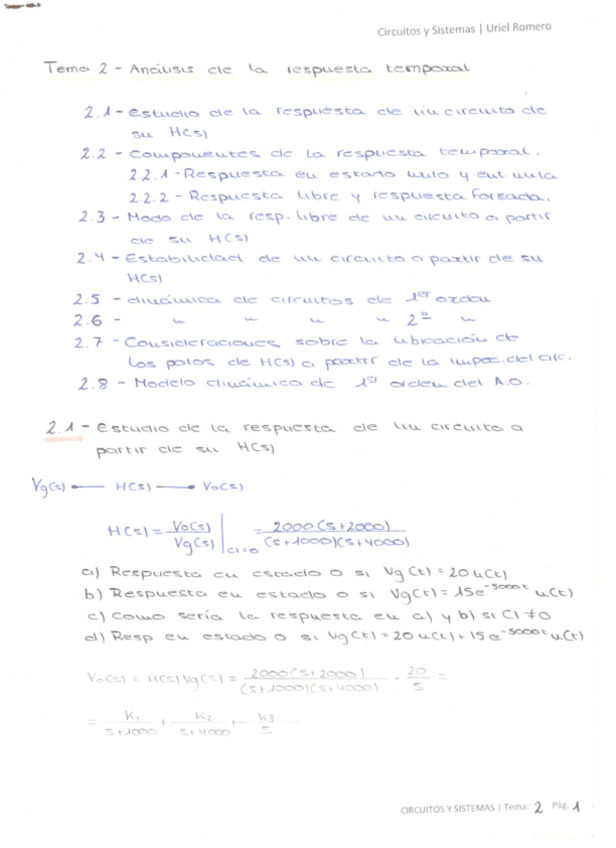 Circuitos y Sistemas | Uriel Romero
Tema 2 - Análisis de la respuesta temporal
2.1 - Estudio de la respuesta de un circuito de
su H(s)
2.2 - Componentes de la respuesta temporal.
2.2.1 - Respuesta en estado nulo y ent. nula
2.2.2 - Respuesta libre y respuesta forzada.
2.3 - Modo de la resp. libre de un circuito a partir
de su H(s)
2.4 - Estabilidad de un circuito a partir de su
H(s)
2.5 - dinámica de circuitos de 1er orden
2.6 - " " " " 2º "
2.7 - Consideraciones sobre la ubicación de
los polos de H(s) a partir de la impec. del circ.
2.8 - Modelo dinámico de 1er orden del A.O.
2.1 - Estudio de la respuesta de un circuito a
partir de su H(s)
Vg(s) — H(s) — Vo(s)
H(s) = Vo(s)/Vg(s) |CI=0 = 2000(s+2000)/(s+1000)(s+4000)
a) Respuesta en estado 0 si Vg(t) = 20u(t)
b) Respuesta en estado 0 si Vg(t) = 15e^-5000t u(t)
c) Como sería la respuesta en a) y b) si CI ≠ 0
d) Resp en estado 0 si Vg(t) = 20u(t) + 15e^-5000t u(t)
Vo(s) = H(s) Vg(s) = 2000(s+2000)/(s+1000)(s+4000) · 20/s =
= K1/s+1000 + K2/s+4000 + K3/s
CIRCUITOS Y SISTEMAS | Tema: 2 Pág. 1